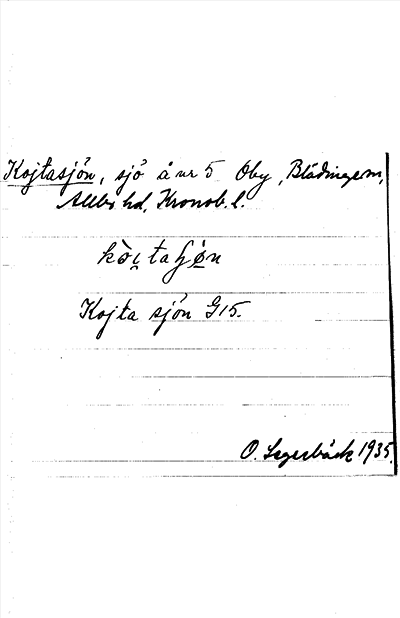 Kojtasjön, sjö å nr 5 Öby, Blädinge sn,
Allbo hd, Kronob. l.
kòi̯taʃø̀n
Kojta sjön G15.
O. Segerbäck 1935.